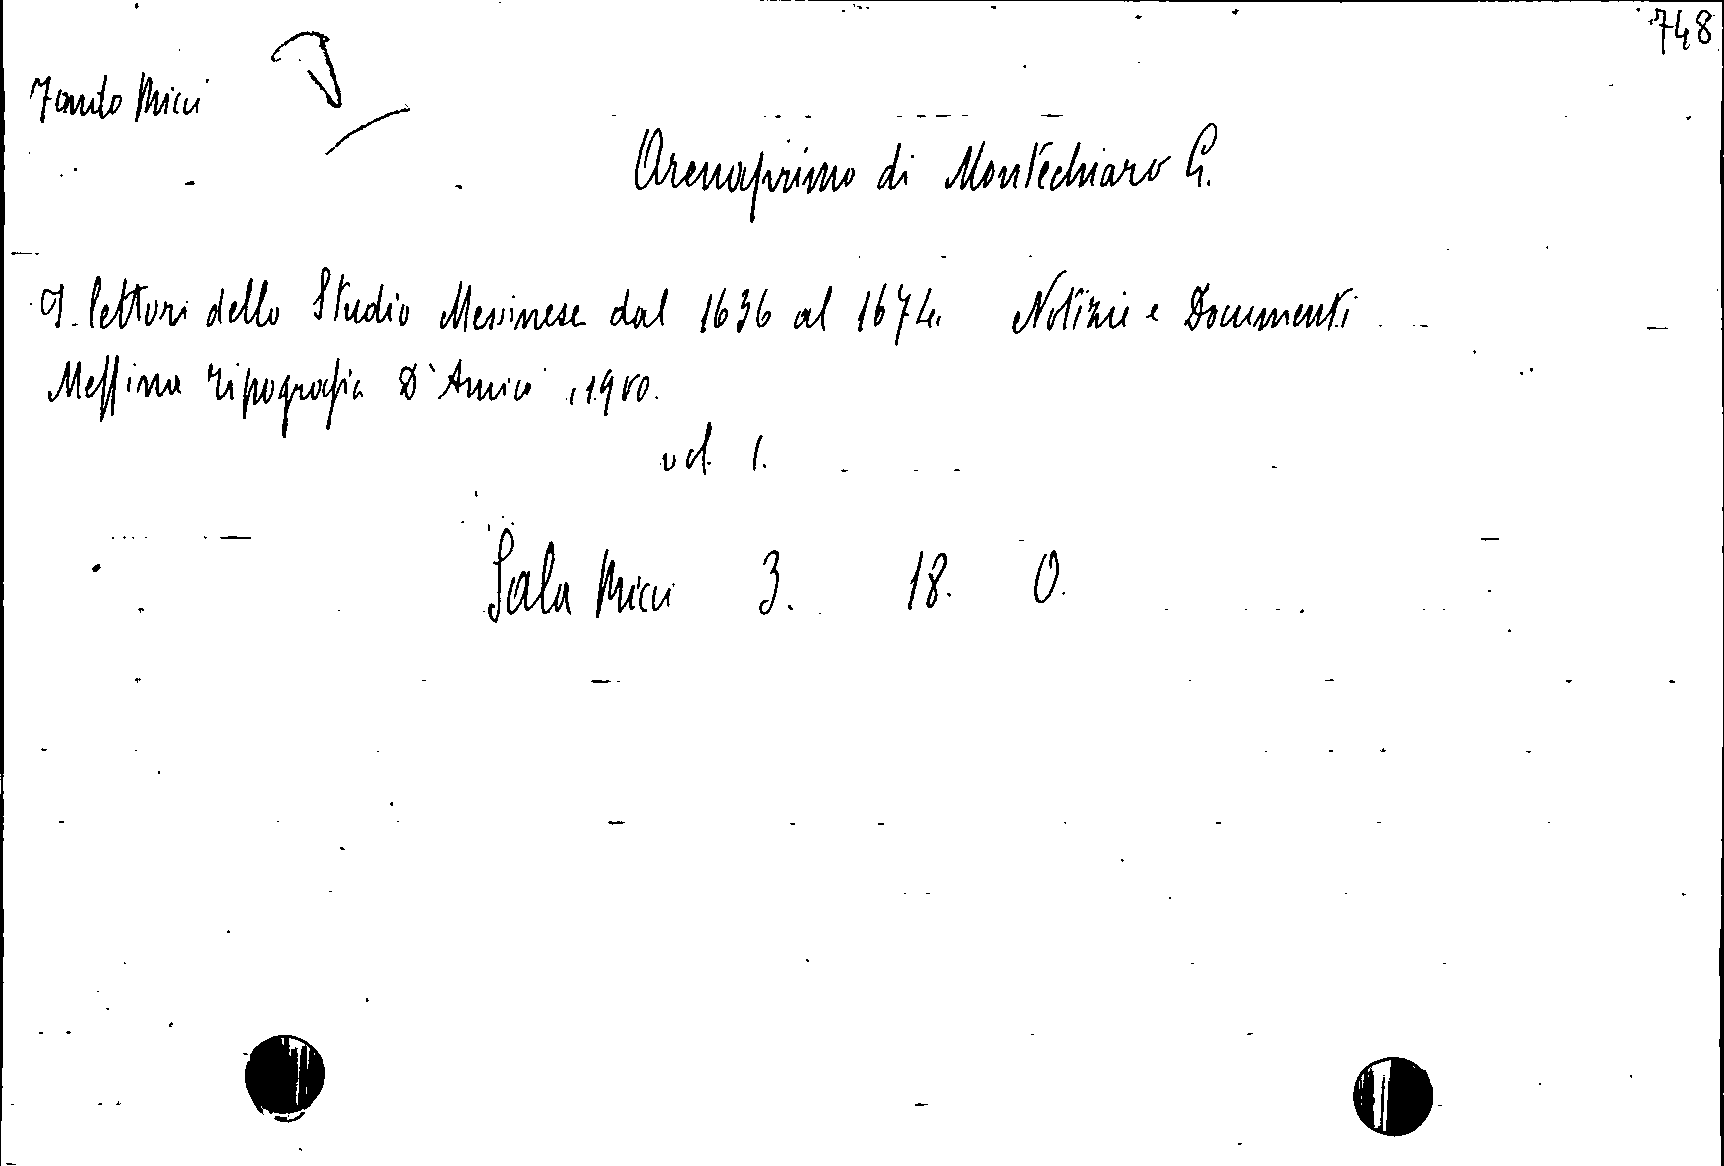 748
Fondo Micci
Arenaprimo di Montechiaro G.
I. lettori dello Studio Messinese dal 1636 al 1674. Notizie e Documenti
Messina Tipografia D'Amico, 1900.
vol. 1.
Sala Micci 3. 18. O.